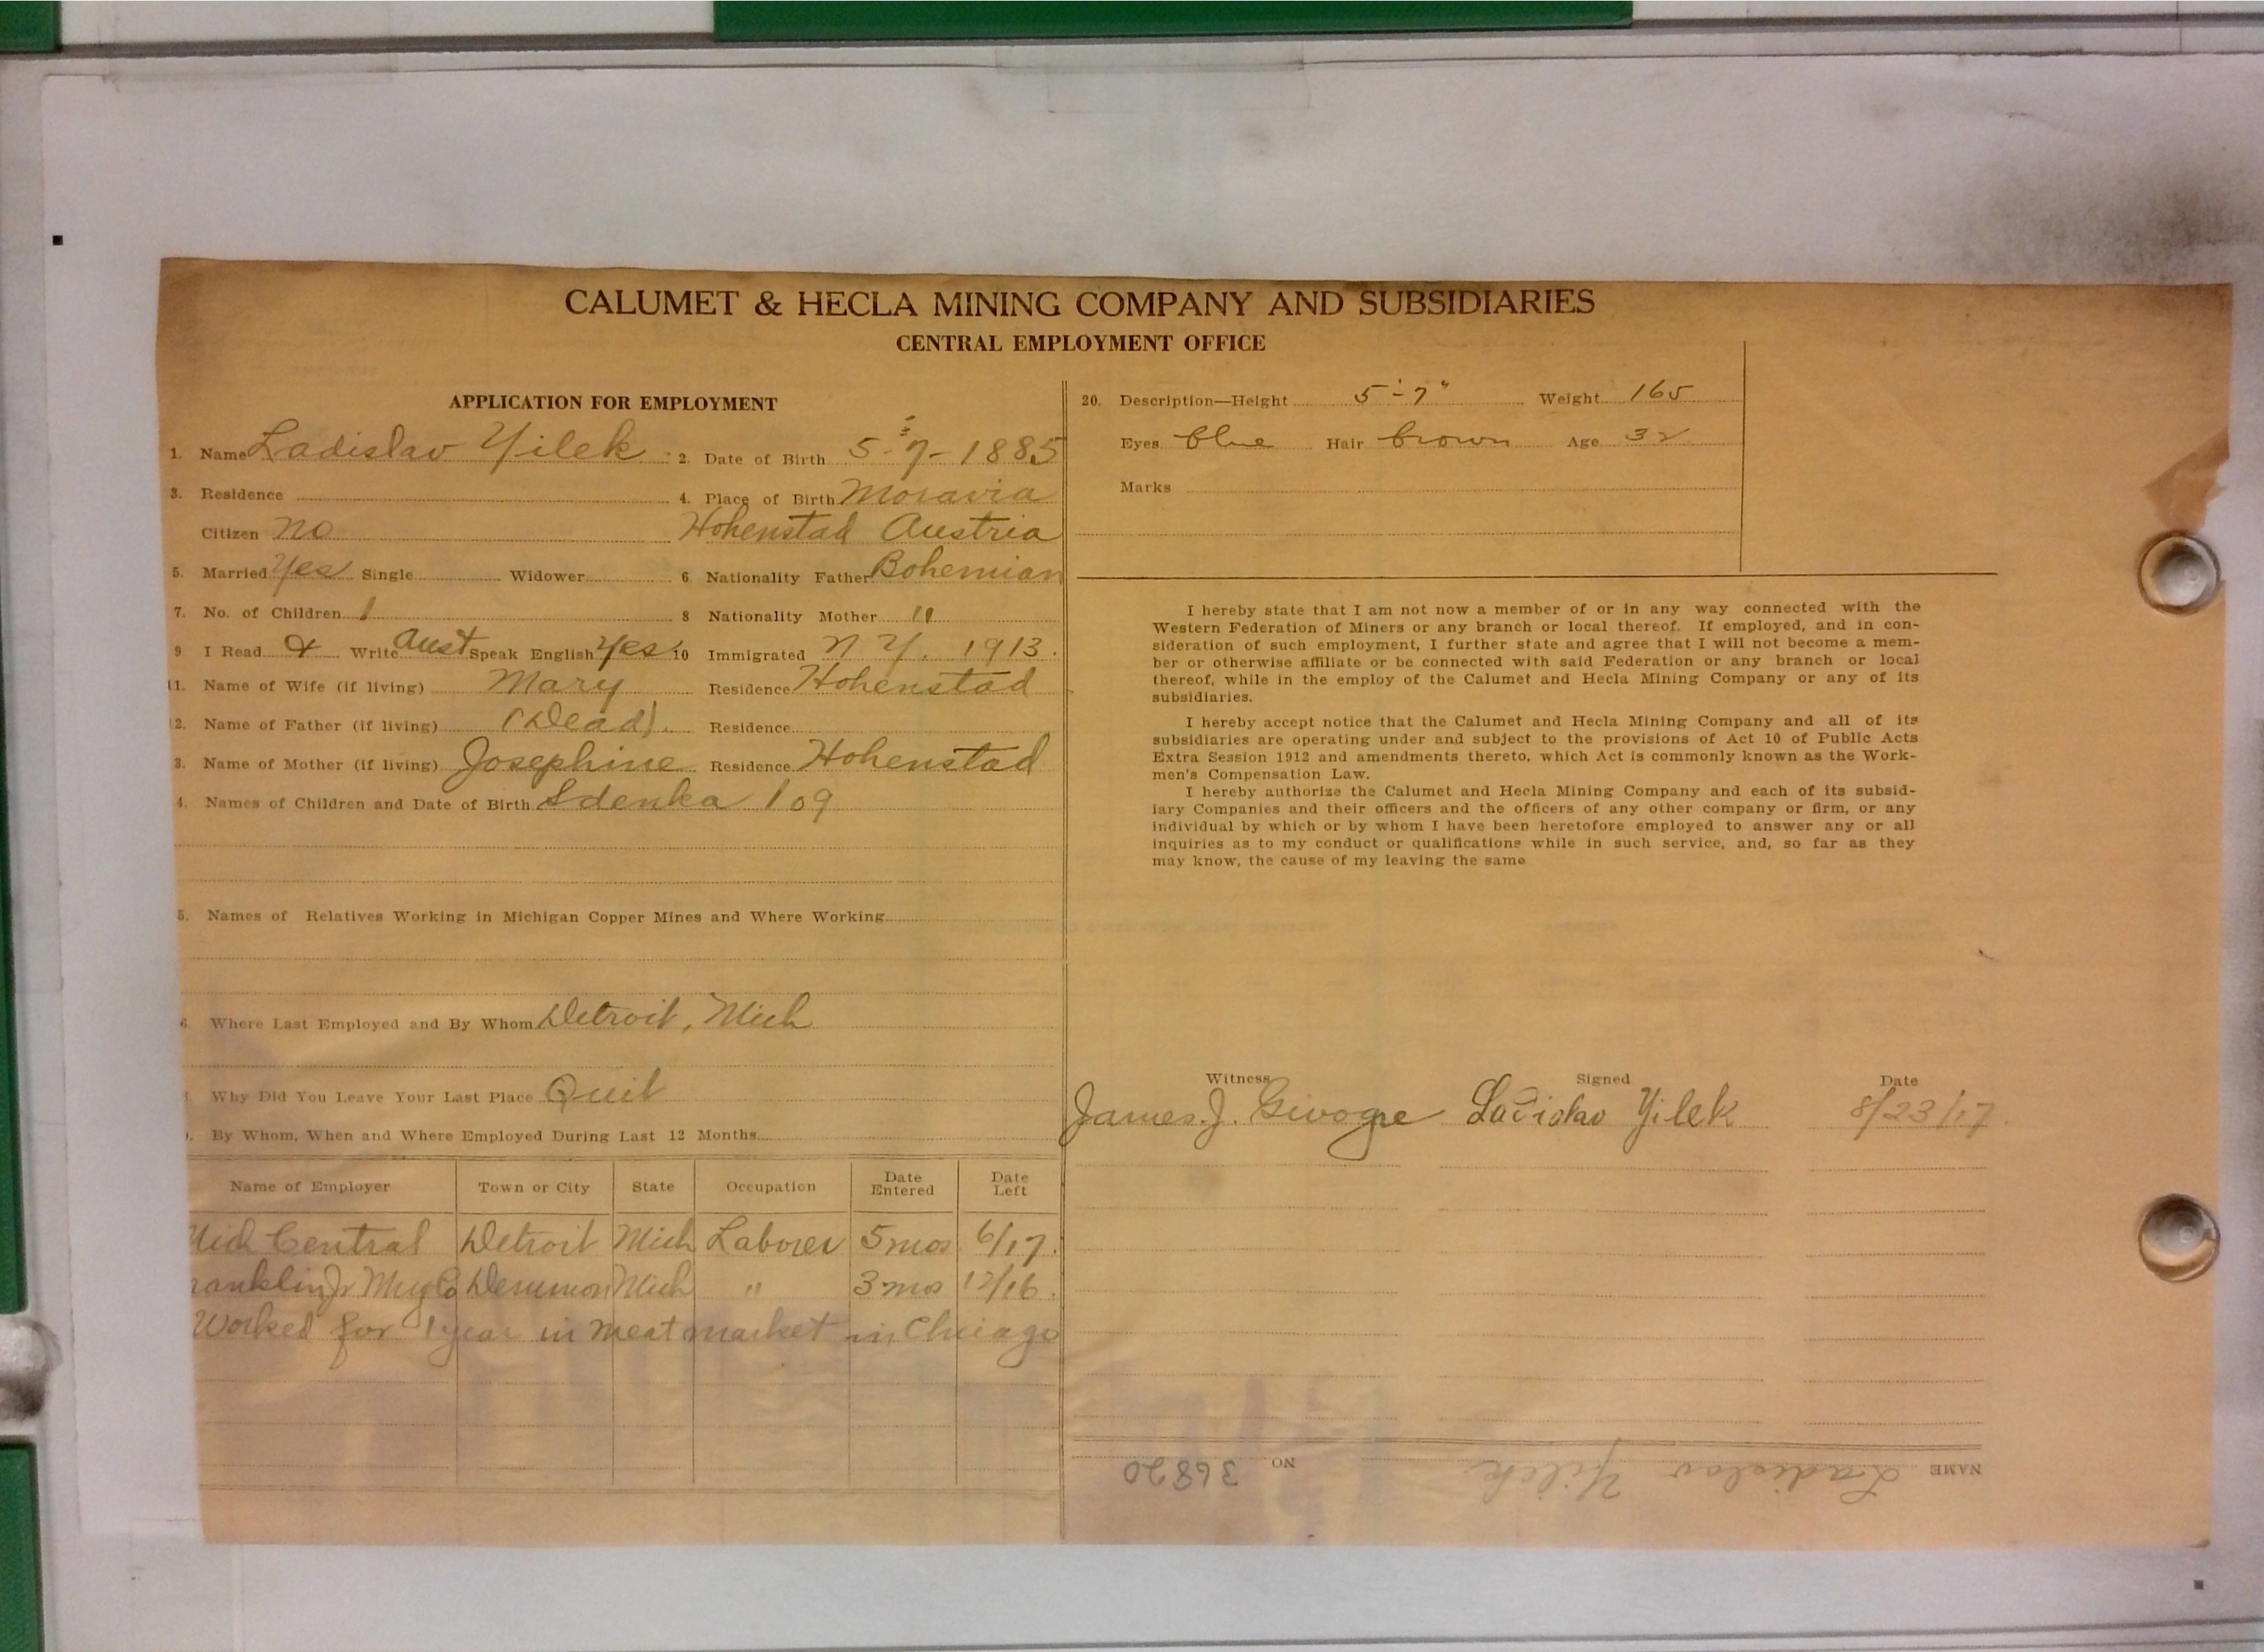 CALUMET & HECLA MINING COMPANY AND SUBSIDIARIES
CENTRAL EMPLOYMENT OFFICE
APPLICATION FOR EMPLOYMENT
1. Name Ladislav Yilek 2. Date of Birth 5-7-1885
3. Residence 4. Place of Birth Moravia
Citizen no Hohenstad Austria
5. Married Yes Single Widower 6 Nationality Father Bohemian
7. No. of Children 1 8 Nationality Mother "
9 I Read & Write Aust Speak English Yes 10 Immigrated N Y. 1913.
11. Name of Wife (if living) Mary Residence Hohenstad
12. Name of Father (if living) (Dead). Residence
3. Name of Mother (if living) Josephine Residence Hohenstad
4. Names of Children and Date of Birth Sdenka 109
5. Names of Relatives Working in Michigan Copper Mines and Where Working
6. Where Last Employed and By Whom Detroit, Mich
Why Did You Leave Your Last Place Quit
. By Whom, When and Where Employed During Last 12 Months
Name of Employer Town or City State Occupation Date Entered Date Left
Mich Central Detroit Mich Laborer 5 mos 6/17.
ranklin Jr Mng Co Mich " 3 mos 12/16.
Worked for 1 year in meat market in Chicago
20. Description—Height 5'-7" Weight 165
Eyes blue Hair brown Age 32
Marks
I hereby state that I am not now a member of or in any way connected with the
Western Federation of Miners or any branch or local thereof. If employed, and in con-
sideration of such employment, I further state and agree that I will not become a mem-
ber or otherwise affiliate or be connected with said Federation or any branch or local
thereof, while in the employ of the Calumet and Hecla Mining Company or any of its
subsidiaries.
I hereby accept notice that the Calumet and Hecla Mining Company and all of its
subsidiaries are operating under and subject to the provisions of Act 10 of Public Acts
Extra Session 1912 and amendments thereto, which Act is commonly known as the Work-
men's Compensation Law.
I hereby authorize the Calumet and Hecla Mining Company and each of its subsid-
iary Companies and their officers and the officers of any other company or firm, or any
individual by which or by whom I have been heretofore employed to answer any or all
inquiries as to my conduct or qualifications while in such service, and, so far as they
may know, the cause of my leaving the same
Witness Signed Date
James. J. Ladislav Yilek 8/23/17.
NAME Ladislav Yilek NO 36820